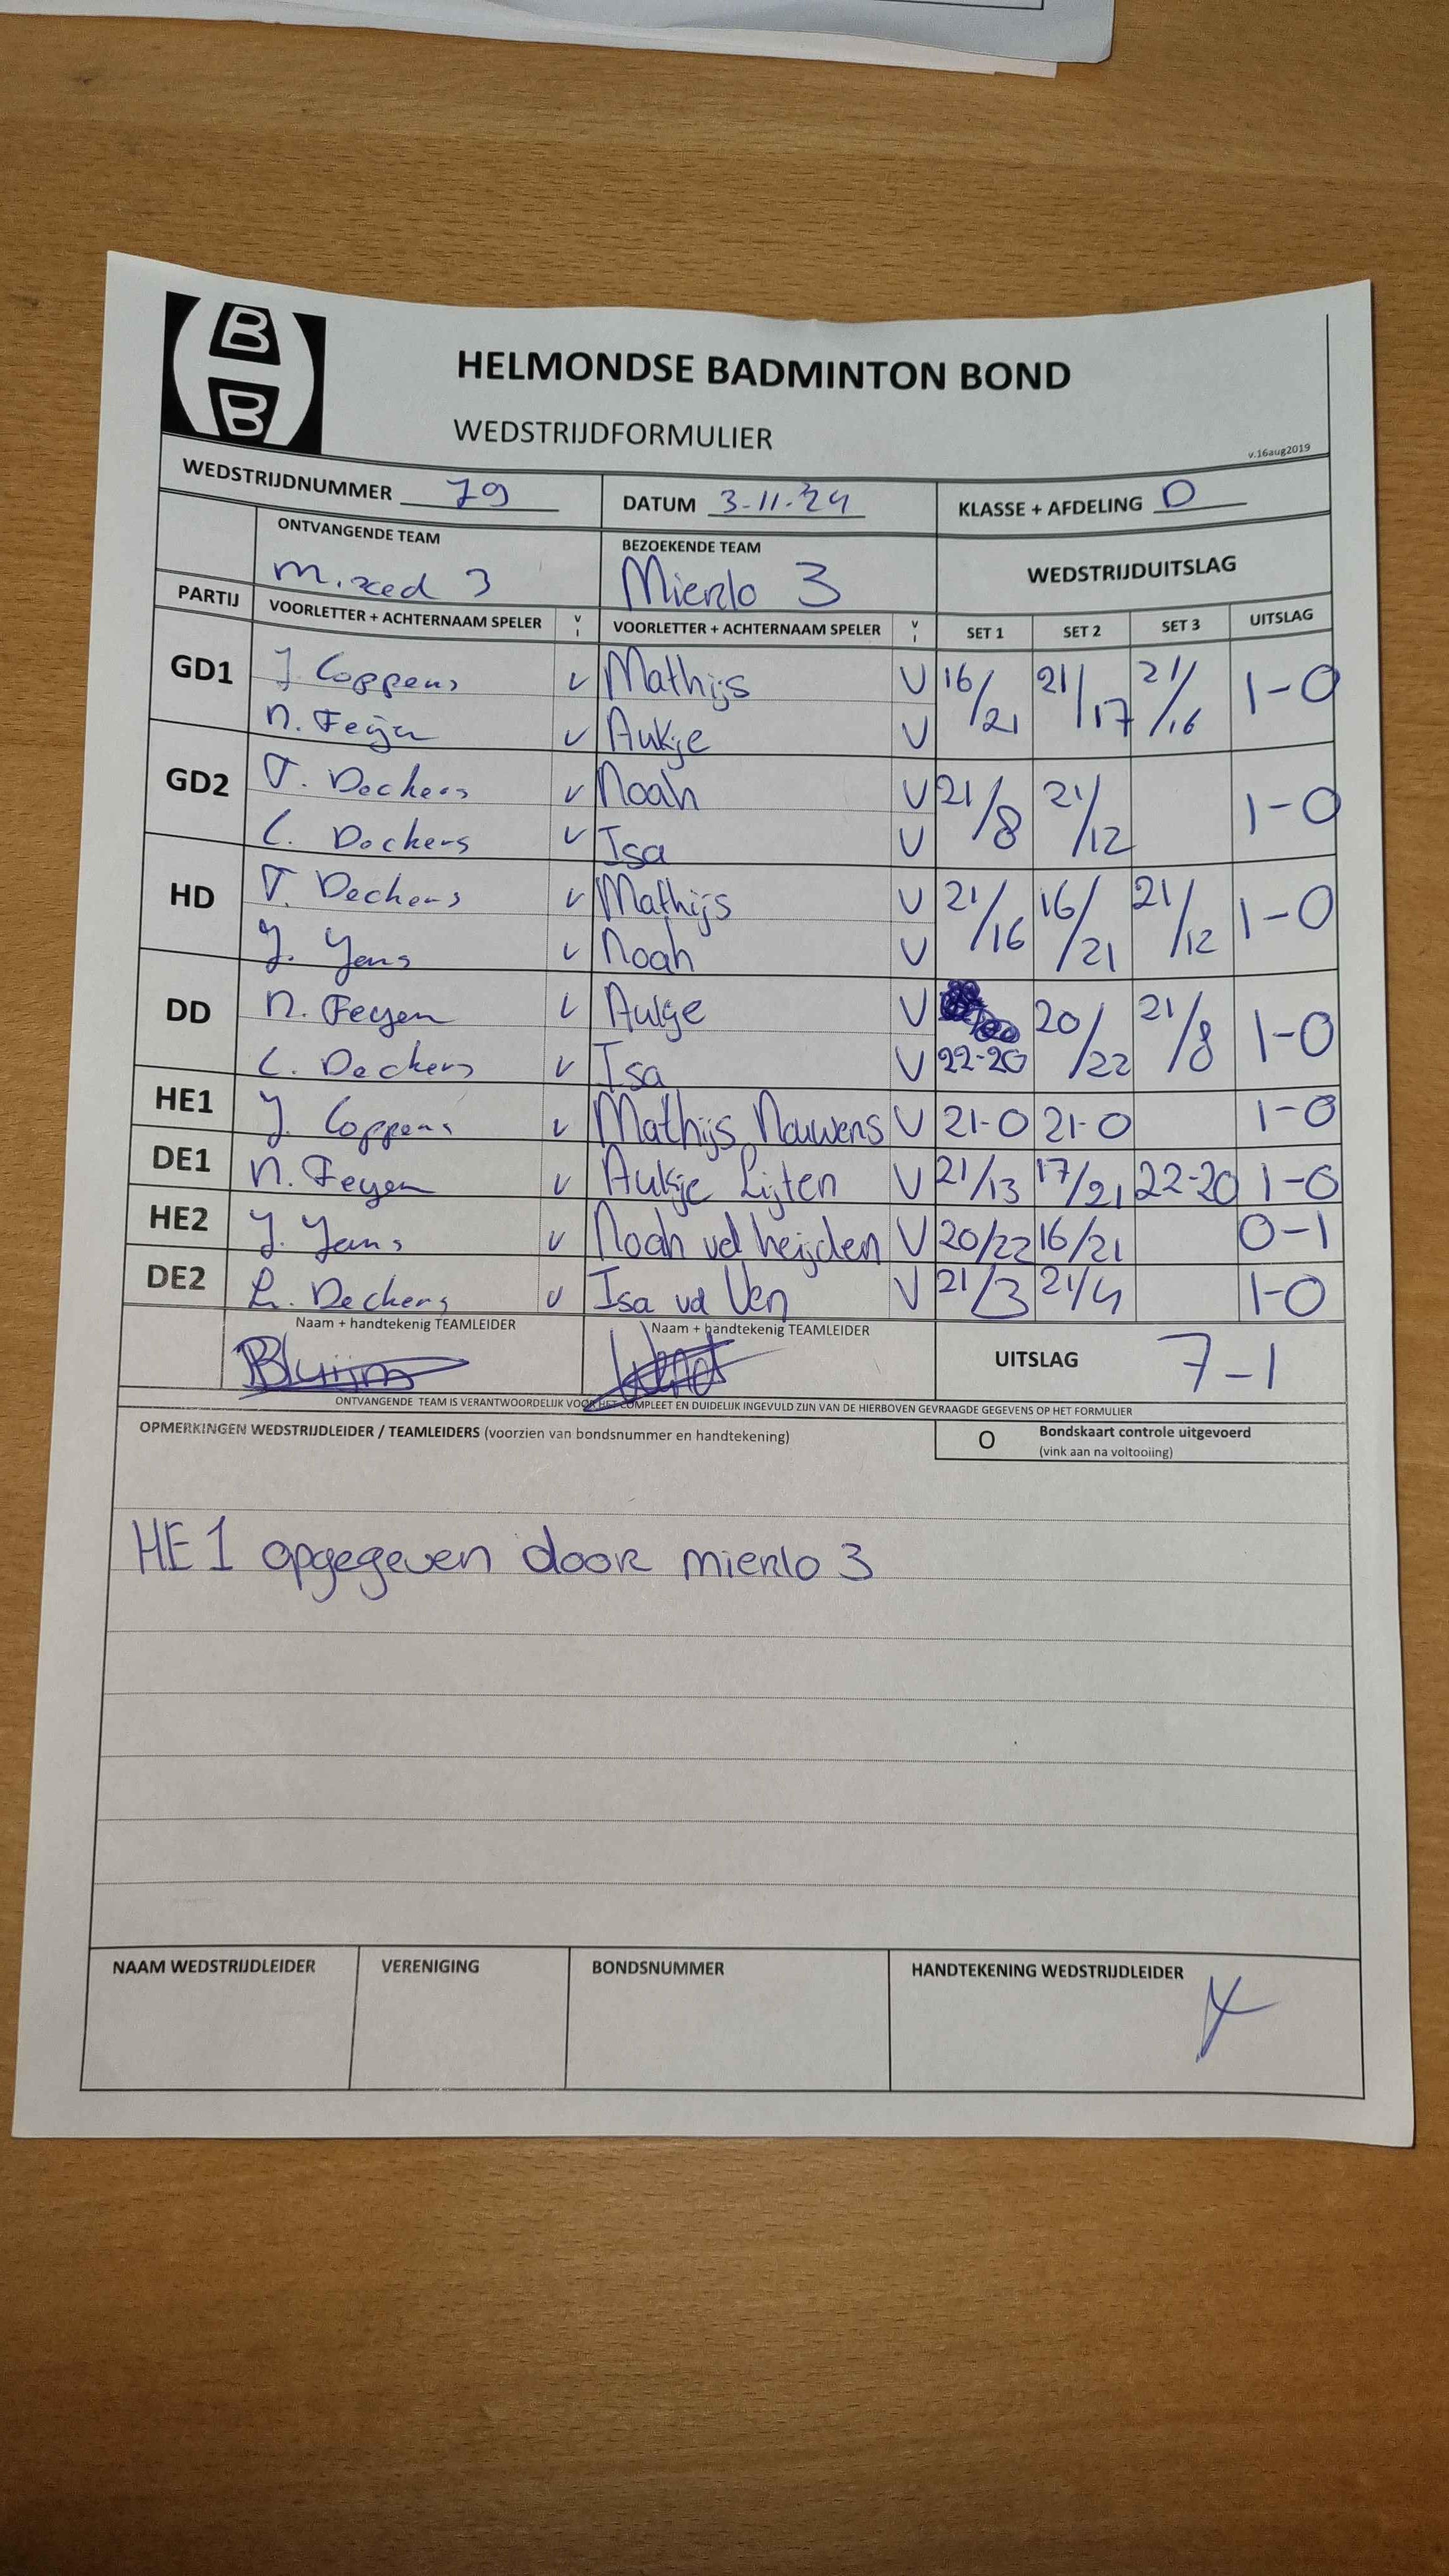 B
B
HELMONDSE BADMINTON BOND
WEDSTRIJDFORMULIER
v.16aug2019
WEDSTRIJDNUMMER 79 DATUM 3-11-'24 KLASSE + AFDELING D
ONTVANGENDE TEAM BEZOEKENDE TEAM WEDSTRIJDUITSLAG
Mixed 3 Mierlo 3
PARTIJ VOORLETTER + ACHTERNAAM SPELER V I VOORLETTER + ACHTERNAAM SPELER V I SET 1 SET 2 SET 3 UITSLAG
GD1 J Coppens v Mathijs V 16/21 21/17 21/16 1-0
N. Feijen v Aukje V
GD2 T. Deckers v Noah V 21/8 21/12 1-0
L. Deckers v Isa V
HD T. Deckers v Mathijs V 21/16 16/21 21/12 1-0
J. Jans v Noah V
DD N. Feyen v Aukje V 20/22 21/8 1-0
L. Deckers v Isa V 22-20
HE1 J. Coppens v Mathijs Nouwens V 21-0 21-0 1-0
DE1 N. Feyen v Aukje Lijten V 21/13 17/21 22-20 1-0
HE2 J. Jans v Noah vd heijden V 20/22 16/21 0-1
DE2 L. Deckers v Isa vd Ven V 21/3 21/4 1-0
Naam + handtekenig TEAMLEIDER Naam + handtekenig TEAMLEIDER
UITSLAG 7-1
ONTVANGENDE TEAM IS VERANTWOORDELIJK VOOR HET COMPLEET EN DUIDELIJK INGEVULD ZIJN VAN DE HIERBOVEN GEVRAAGDE GEGEVENS OP HET FORMULIER
OPMERKINGEN WEDSTRIJDLEIDER / TEAMLEIDERS (voorzien van bondsnummer en handtekening) O Bondskaart controle uitgevoerd
(vink aan na voltooiing)
HE1 opgegeven door mierlo 3
NAAM WEDSTRIJDLEIDER VERENIGING BONDSNUMMER HANDTEKENING WEDSTRIJDLEIDER